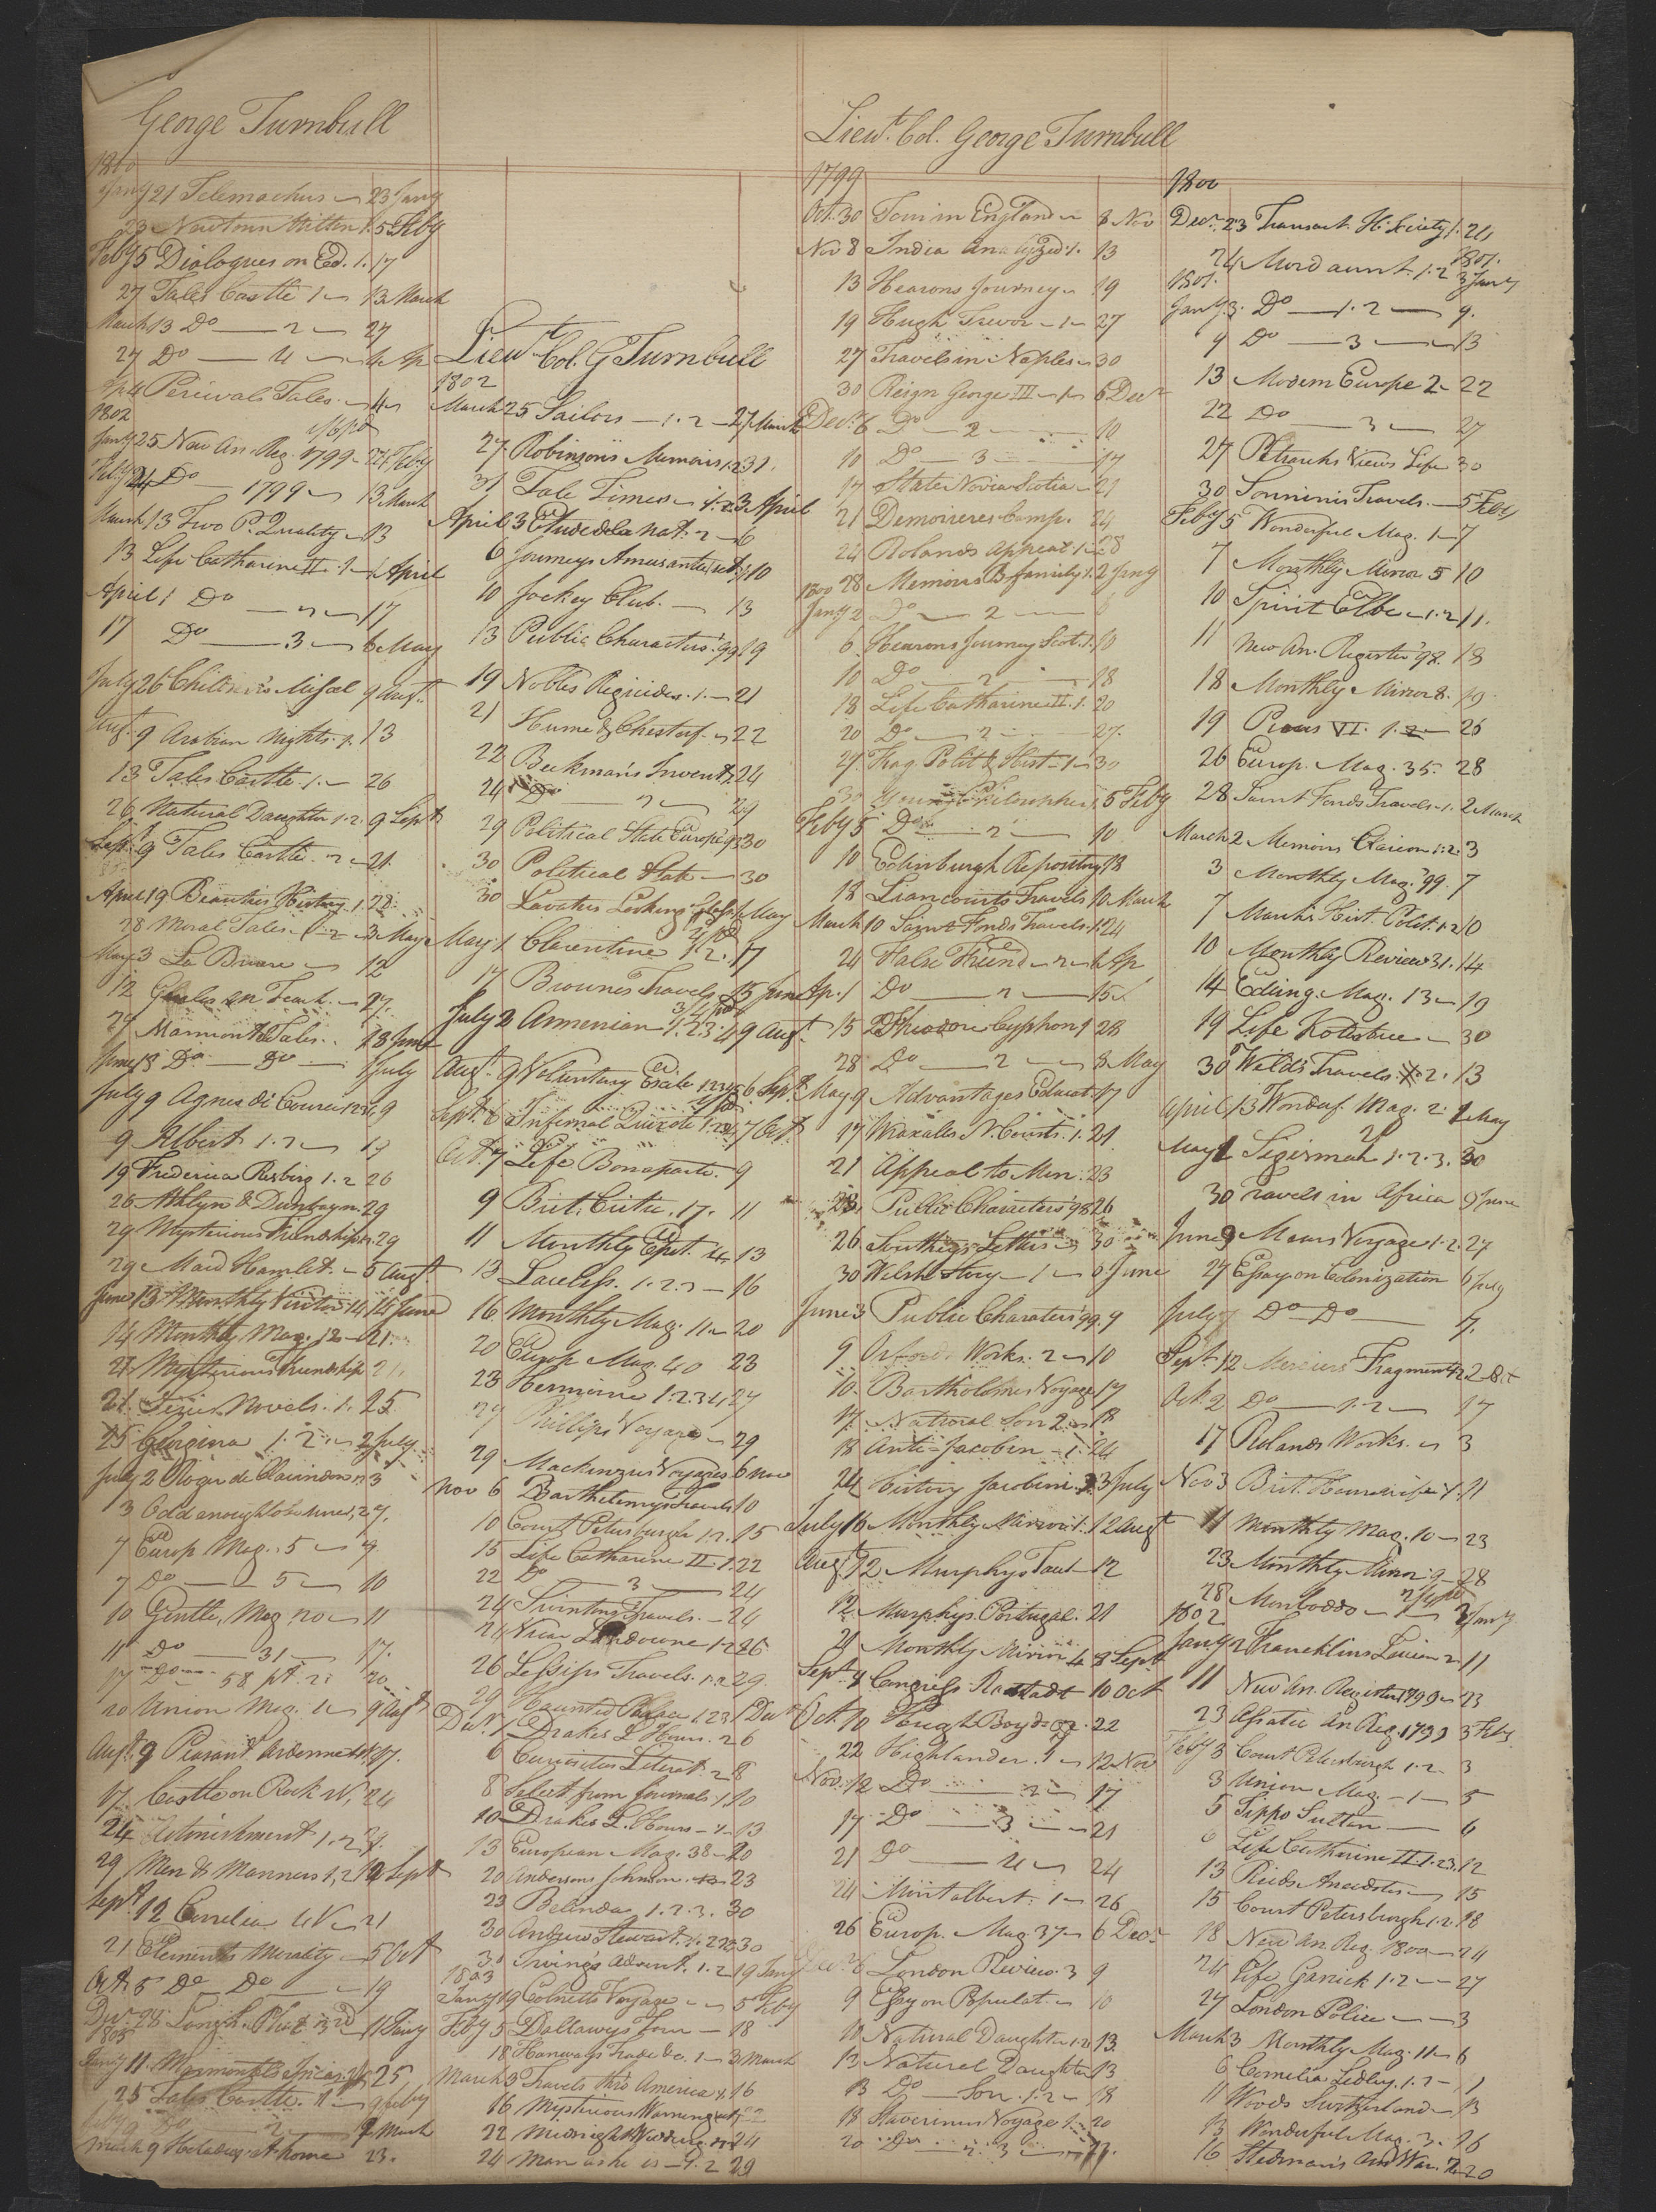 George Turnbull
1800
Jany 21 Telemachus ~ 23 Jany
23 Newtown Mitten 1. 5 Feby
Feby 5 Dialogues on Ed. 1. 17
27 Tales Castle 1 ~ 13 March
March 13 Do — 2 ~ 27
27 Do — 4 ~ 4 Ap
Ap 4 Percivals Tales
1802
Jany 25 New An. Reg. 1799 ~ 24 Feby
Feby 24 Do — 1799 ~ 13 March
March 13 Two P. Quality ~ 13
13 Life Catharine II. 1 ~ 1 April
April 1 Do — 2 ~ 17
17 Do — 3 ~ 6 May
July 26 Children's Missel 9 Augt.
Augt. 9 Arabian Nights. 1. 13
13 Tales Castle. 1. ~ 26
26 Natural Daughter 1.2. 9 Sept
Sept. 9 Tales Castle. 2 ~ 21.
April 19 Beauties History. 1. 28
28 Moral Tales. 1.2 ~ 3 May
May 3 La Bruere ~ 12
12
27 Marmontel Tales. 18 June
June 18 Do — Do — 1 July
July 9 Agnes di Courci 9
9 Albert 1.2 ~ 19
19 Frederica Risberg 1.2 26
26 Athlyn & Dunbayn. 29
29 Mysterious Friendship 29
29 Maid Hamlet. ~ 5 Augt.
June 13 Monthly Visitor 14 14 June
14 Monthly Mag. 12 ~ 21.
21 Mysterious Friendship 21.
21 Novels. 1. 25
25 Georgina 1.2 ~ 2 July
July 2 Roger de Clarindon 3
3 Odd enough to be sure 1,2 7.
7 Europ Mag. 5 ~ 7
7 Do — 5 ~ 10
10 Gentle. Mag. 20 ~ 11
11 Do — 31 — 17.
17 Do — 58 pt. 2. 20
20 Union Mag. 1 ~ 9 Augt
Augt. 9 Peasant Ardenne 17.
17. Castle on Rock 24
24 Astonishment 1.2
29 Men & Manners 1,2 Sept
Sept. 12 Cornelia 4V ~ 21
21 Elements Morality ~ 5 Oct
Oct 5 Do — Do — 19
1803
Jany 11. Marmontels Incas 25
25 Tales Castle. 1 ~ 9 Feby
Feby 9 Do — 2 — 9 March
March 9 at home 23.
Lieut. Col. G Turnbull
1802
March 25 Sailors — 1.2 ~ 27 March
27 Robinson's Memoirs 1.2 31.
31 Tale Times ~ 1.2.3 April
April 3 Etude de la Nat. 2 ~ 6
6 Journeys Amusantes 10
10 Jockey Club. — 13
13 Public Characters '99. 19
19 Nobles Regicides. 1. — 21
21 Hume & Chesterf. ~ 22
22 Beckman's Invent. 24
24 Do — 2 ~ 29
29 Political State Europe 93 30
30 Political State — 30
30 Lavaters Looking Glass 1 May
May 1 Clarentine 1.2. 17
17 Brownes Travels 15 June
July 2 Armenian 1.2.3.4 9 Augt
Augt. 9 Voluntary Exile 6 Sept.
Sept. 6 Infernal Quixote 7 Oct.
Oct. 7 Life Bonaparte. 9
9 Brit. Critic. 17. 11
11 Monthly Epit. 13
13 Lawless. 1.2.3 — 16
16 Monthly Mag. 11 ~ 20
20 Europ Mag 40 23
23 Hermione 1.2.3.4, 27
27 Phillips Voyage ~ 29
29 Mackenzies Voyages 6 Nov
Nov 6 Barthelemys Travels 10
10 Court Petersburgh 1.2. 15
15 Life Catharine II 1. 22
22 Do — 3 — 24
24 Swintons Travels. — 24
24 Vicar Lansdowne 1.2 26
26 Lessips Travels. 1.2 29.
29 Haunted Palace 1.2.3 1 Decr
Decr. 1 Drakes L. Hours. 2 6
6 Curiosities Literat. 2 8
8 Select from Journals. 1. 10
10 Drakes L. Hours — 1 ~ 13
13 European Mag. 38 ~ 20
20 Andersons Johnson. 23
23 Belinda 1.2.3. 30
30 Andrew Stewart. 30
30 Irvings Advent. 1.2 19 Jany
1803
Jany 19 Colnetts Voyage ~ 5 Feby
Feby 5 Dallaways Tour — 18
18 Hanways Trade &c. 1 ~ 3 March
March 3 Travels thro America 16
16 Mysterious Warning 22
22 Midnight Wedding 24
24 Man as he is — 1.2 29
Lieut. Col. George Turnbull
1799
Oct. 30 Tour in England ~ 8 Nov
Nov 8 India Analyzed 1. 13
13 Hearons Journey ~ 19
19 Hugh Trevor ~ 1 ~ 27
27 Travels in Naples ~ 30
30 Reign George III ~ 1 ~ 6 Decr
Decr. 6 Do — 2 — 10
10 Do — 3 — 17
17 State Novia Scotia ~ 21
21 Demoireres Camp. 24
24 Rolands Appeal 1 ~ 28
28 Memoirs B. family 1. 2 Jany
1800
Jany 2 Do — 2 — 6
6 Hearons Journey Scot. 1. 10
10 Do — 2 — 18
18 Life Catharine II. 1. 20
20 Do — 2 — 27.
27. Frag. Polit & Hist — 1 ~ 30
30 Young Philosopher 1. 5 Feby
Feby 5 Do — 2 — 10
10 Edinburgh Repository 18
18 Liancourts Travels 10 March
March 10 Saint Fonds Travels. 1 24
24 False Friend ~ 2 ~ 1 Ap
Ap. 1 Do — 2 — 15
15 Theodore Cyphon 1 28
28 Do — 2 ~ 8 May
May 9 Advantages Educat. 17
17 Wraxalls N. Courts. 1. 21
21 Appeal to Men. 23
23. Public Characters '98 26
26 Southeys Letters ~ 30
30 Welsh Story — 1 ~ 3 June
June 3 Public Charaters '99. 9
9 Orfords Works. 2 ~ 10
10. Bartholomes Voyage 17
17. Natural Son 2 ~ 18
18 Anti-Jacobin — 1. 24
24 History Jacobin. 3 July
July 16 Monthly Mirror 1. 12 Augt
Augt. 12 Murphys Taut 12
12 Murphys Portugal. 21
21 Monthly Mirror 4 3 Sept.
Sept 4 Congress Rastadt 10 Oct
Oct. 10 Hugh Boyd 22
22 Highlander. 1 ~ 12 Nov
Nov. 12 Do — 2 ~ 17
17 Do — 3 ~ 21
21 Do — 4 ~ 24
24 Montalbert. 1 ~ 26
26 Europ. Mag. 37 ~ 6 Decr
Decr 6 London Review. 3 9
9 Essay on Populat. ~ 10
10 Natural Daughter 1.2 13.
13 Naturel Daughter 13
13 Do — Son. 1.2 ~ 18
18 Staverinus Voyage 1. 20
20 Do — 2. 3
1800
Decr. 23 Transact. H. Society 1. 24
24 Mordaunt. 1.2 1801. 3 Jany
1801.
Jany. 3. Do — 1.2 — 9.
9 Do — 3 — 13
13 Modern Europe 2 ~ 22
22 Do — 3 — 27
27 Petrarchs Views Life 30
30 Sonninis Travels. — 5 Feby
Feby 5 Wonderful Mag. 1 ~ 7
7 Monthly Mirror 5 10
10 Spirit Elbe ~ 1.2 11.
11 New An. Register '98. 18
18 Monthly Mirror 8. 19
19 Pious VI. 1.2 — 26
26 Europ. Mag. 35. 28
28 Saint Fonds Travels. 1. 2 March
March 2 Memoirs Clairon 1.2. 3
3 Monthly Mag. '99. 7
7 Marshs Hist. Polit. 1.2 10
10 Monthly Review 31. 14
14 Eding. Mag. 13 ~ 19
19 Life Kotzebue ~ 30
30 Welds Travels. 2. 13
April 13 Wonderf. Mag. 2. 1 May
May 1 Sigismah 1.2.3. 30
30 Travels in Africa 9 June
June 9 Mears Voyage 1.2. 27
27 Essay on Colonization 6 July
July 7 Do — Do — 7.
Sept. 12 Merciers Fragments 1.2 2 Oct
Oct. 2 Do — 1.2 ~ 17
17 Rolands Works. ~ 3
Nov 3 Brit. 11
11 Monthly Mag. 10 ~ 23
23 Monthly Mirror 9 ~ 28
28 Monboddo ~ 1 ~ 2 Jany
1802
Jany 2 Francklins 11
11 New An. Register 1799 ~ 23
23 Asiatic An Reg. 1799 3 Feby
Feby 3 Court Petersburgh 1.2. 3
3 Union Mag. — 1 ~ 5
5 Tippo Sultan — 6
6 Life Catharine II. 1.2.3. 12
13 Reids Anecdotes ~ 15
15 Court Petersburgh 1.2. 18
18 New An. Reg. 1800 ~ 24
24 Life Garrick 1.2 ~ 27
27 London Police ~ 3
March 3 Monthly Mag. 11 ~ 6
6 Cornelia Sedley. 1.2 ~ 11
11 Woods Switzerland ~ 13
13 Wonderful Mag. 3. 16
16 Stedman's Am War. 20